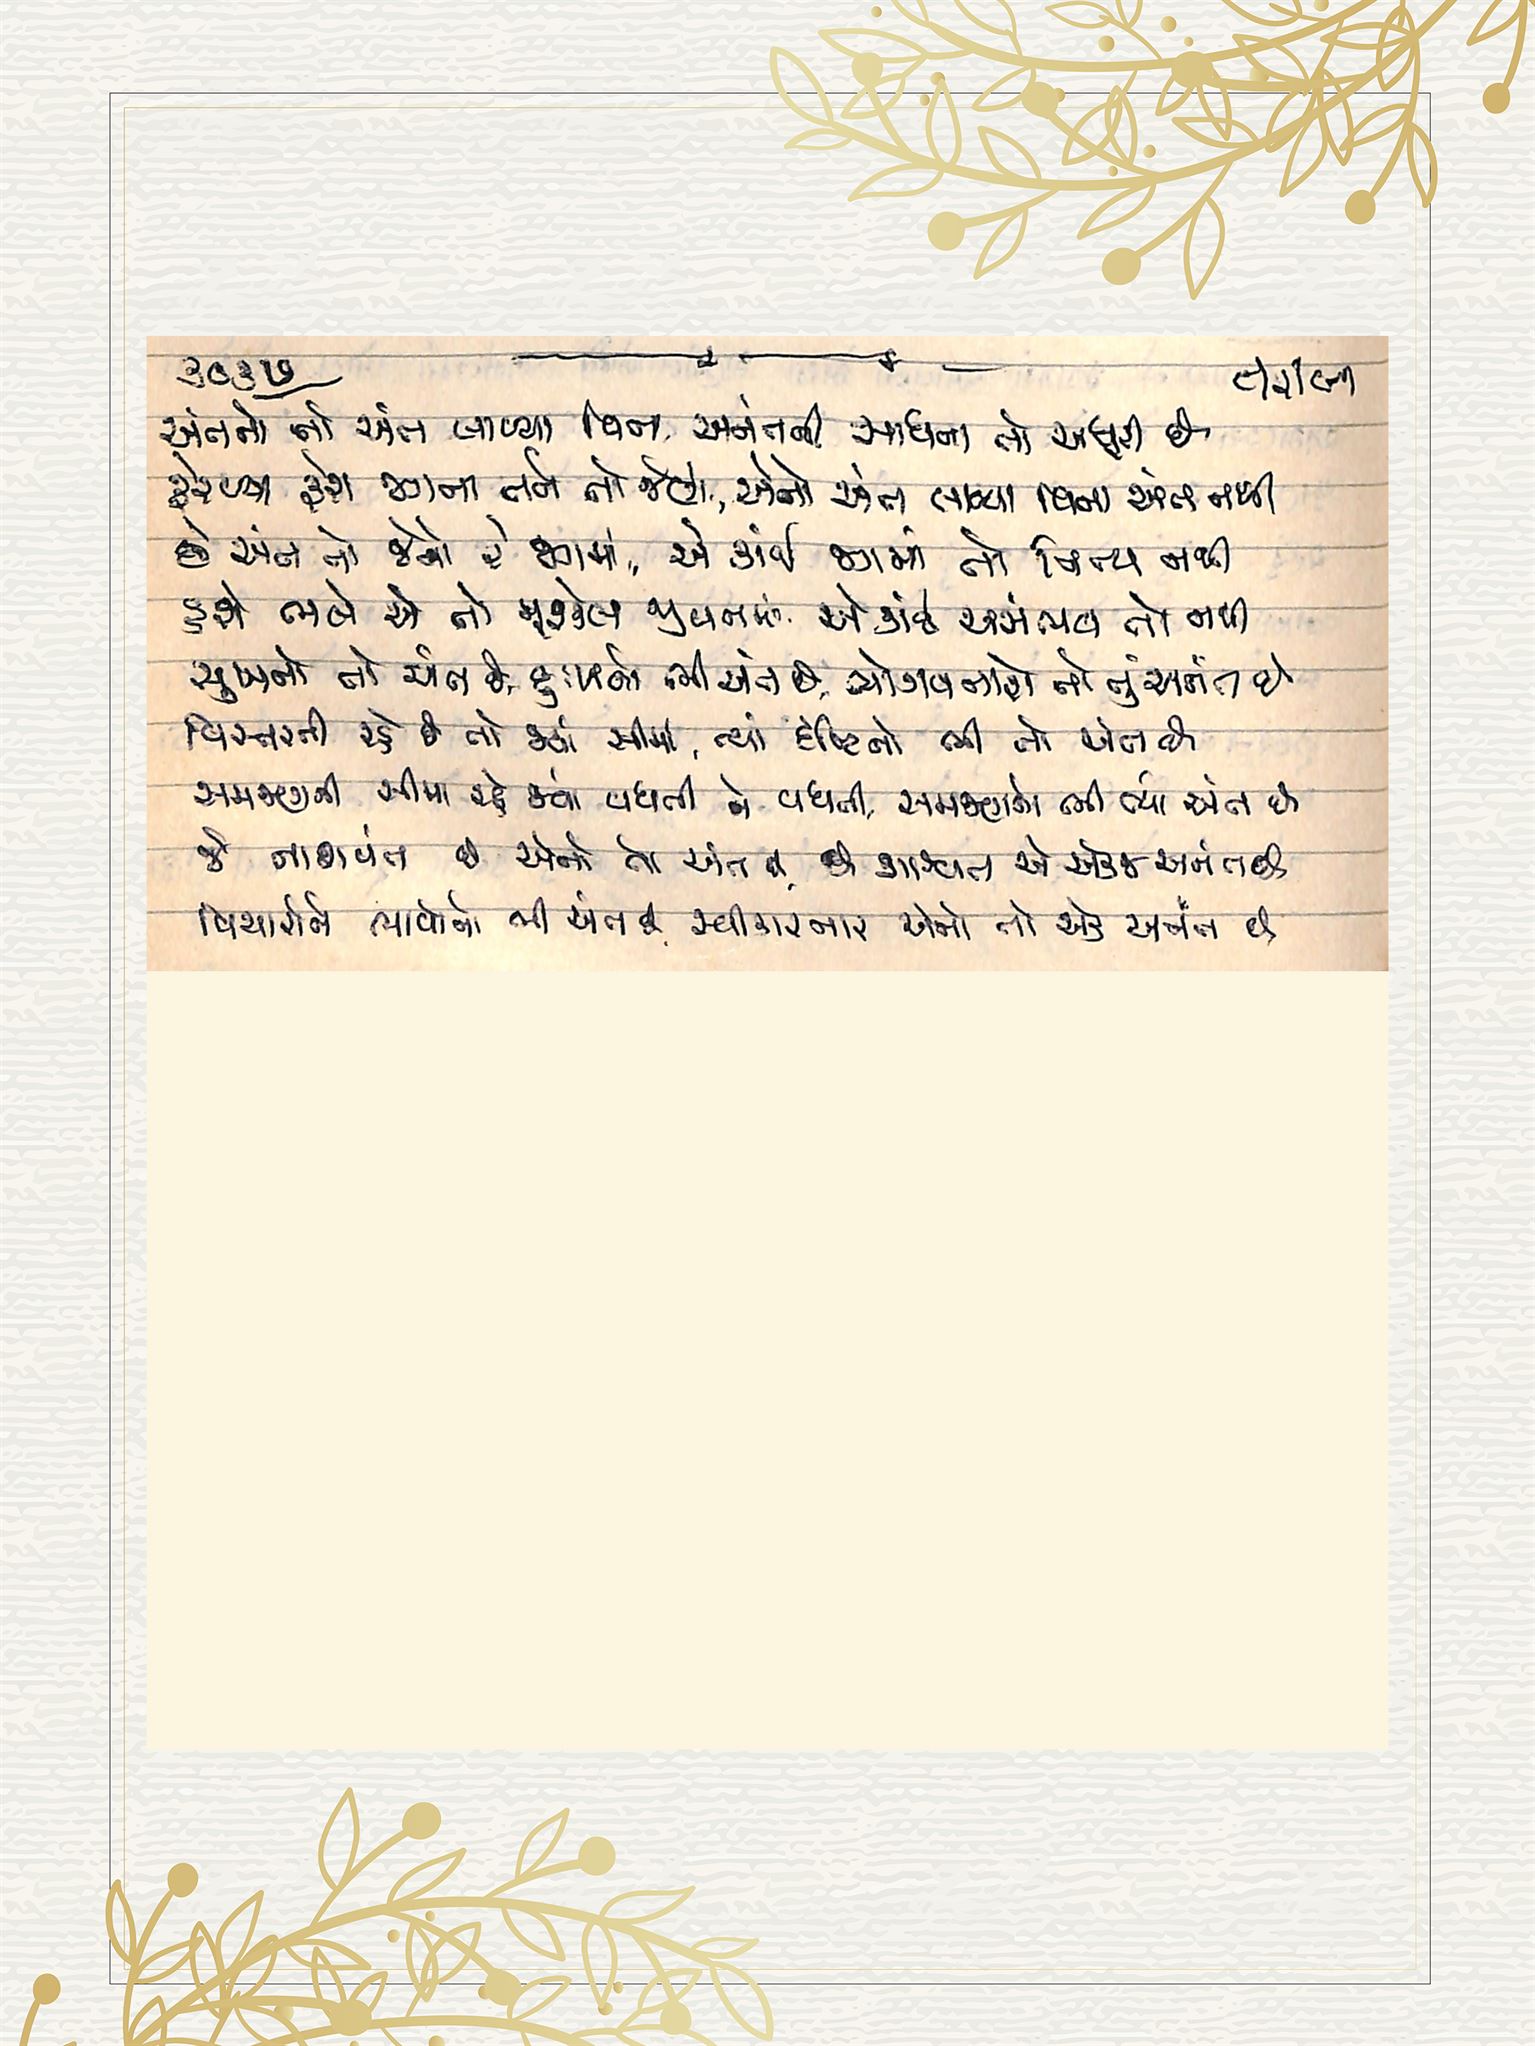 ૩૦૩૭
અંતનો તો અંત લાવ્યા વિના, અનંતની સાધના તો અધૂરી છે
ફેરવ્યા ફેરા જગના તને તો જેણે, એનો અંત લાવ્યા વિના અંત નથી
છે અંત તો જેનો રે જગમાં, એ કાંઈ જગમાં તો નિત્ય નથી
હશે ભલે એ તો મૂશ્કેલ જીવનમાં, એ કાંઈ અસંભવ તો નથી
સુખનો તો અંત છે, દુઃખનો ભી અંત છે, ભોગવનારો તો તું અનંત છે
વિસ્તરતી રહે છે તો જ્યાં સીમા, ત્યાં દૃષ્ટિનો ભી તો અંત છે
સમજણની સીમા રહે જ્યાં વધતી ને વધતી, સમજણનો ભી ત્યાં અંત છે
જે નાશવંત છે એનો તો અંત છે, છે શાશ્વત એ એકજ અનંત છે
વિચારોને ભાવોનો ભી અંત છે, સ્વીકારનાર એનો તો એક અનંત છે